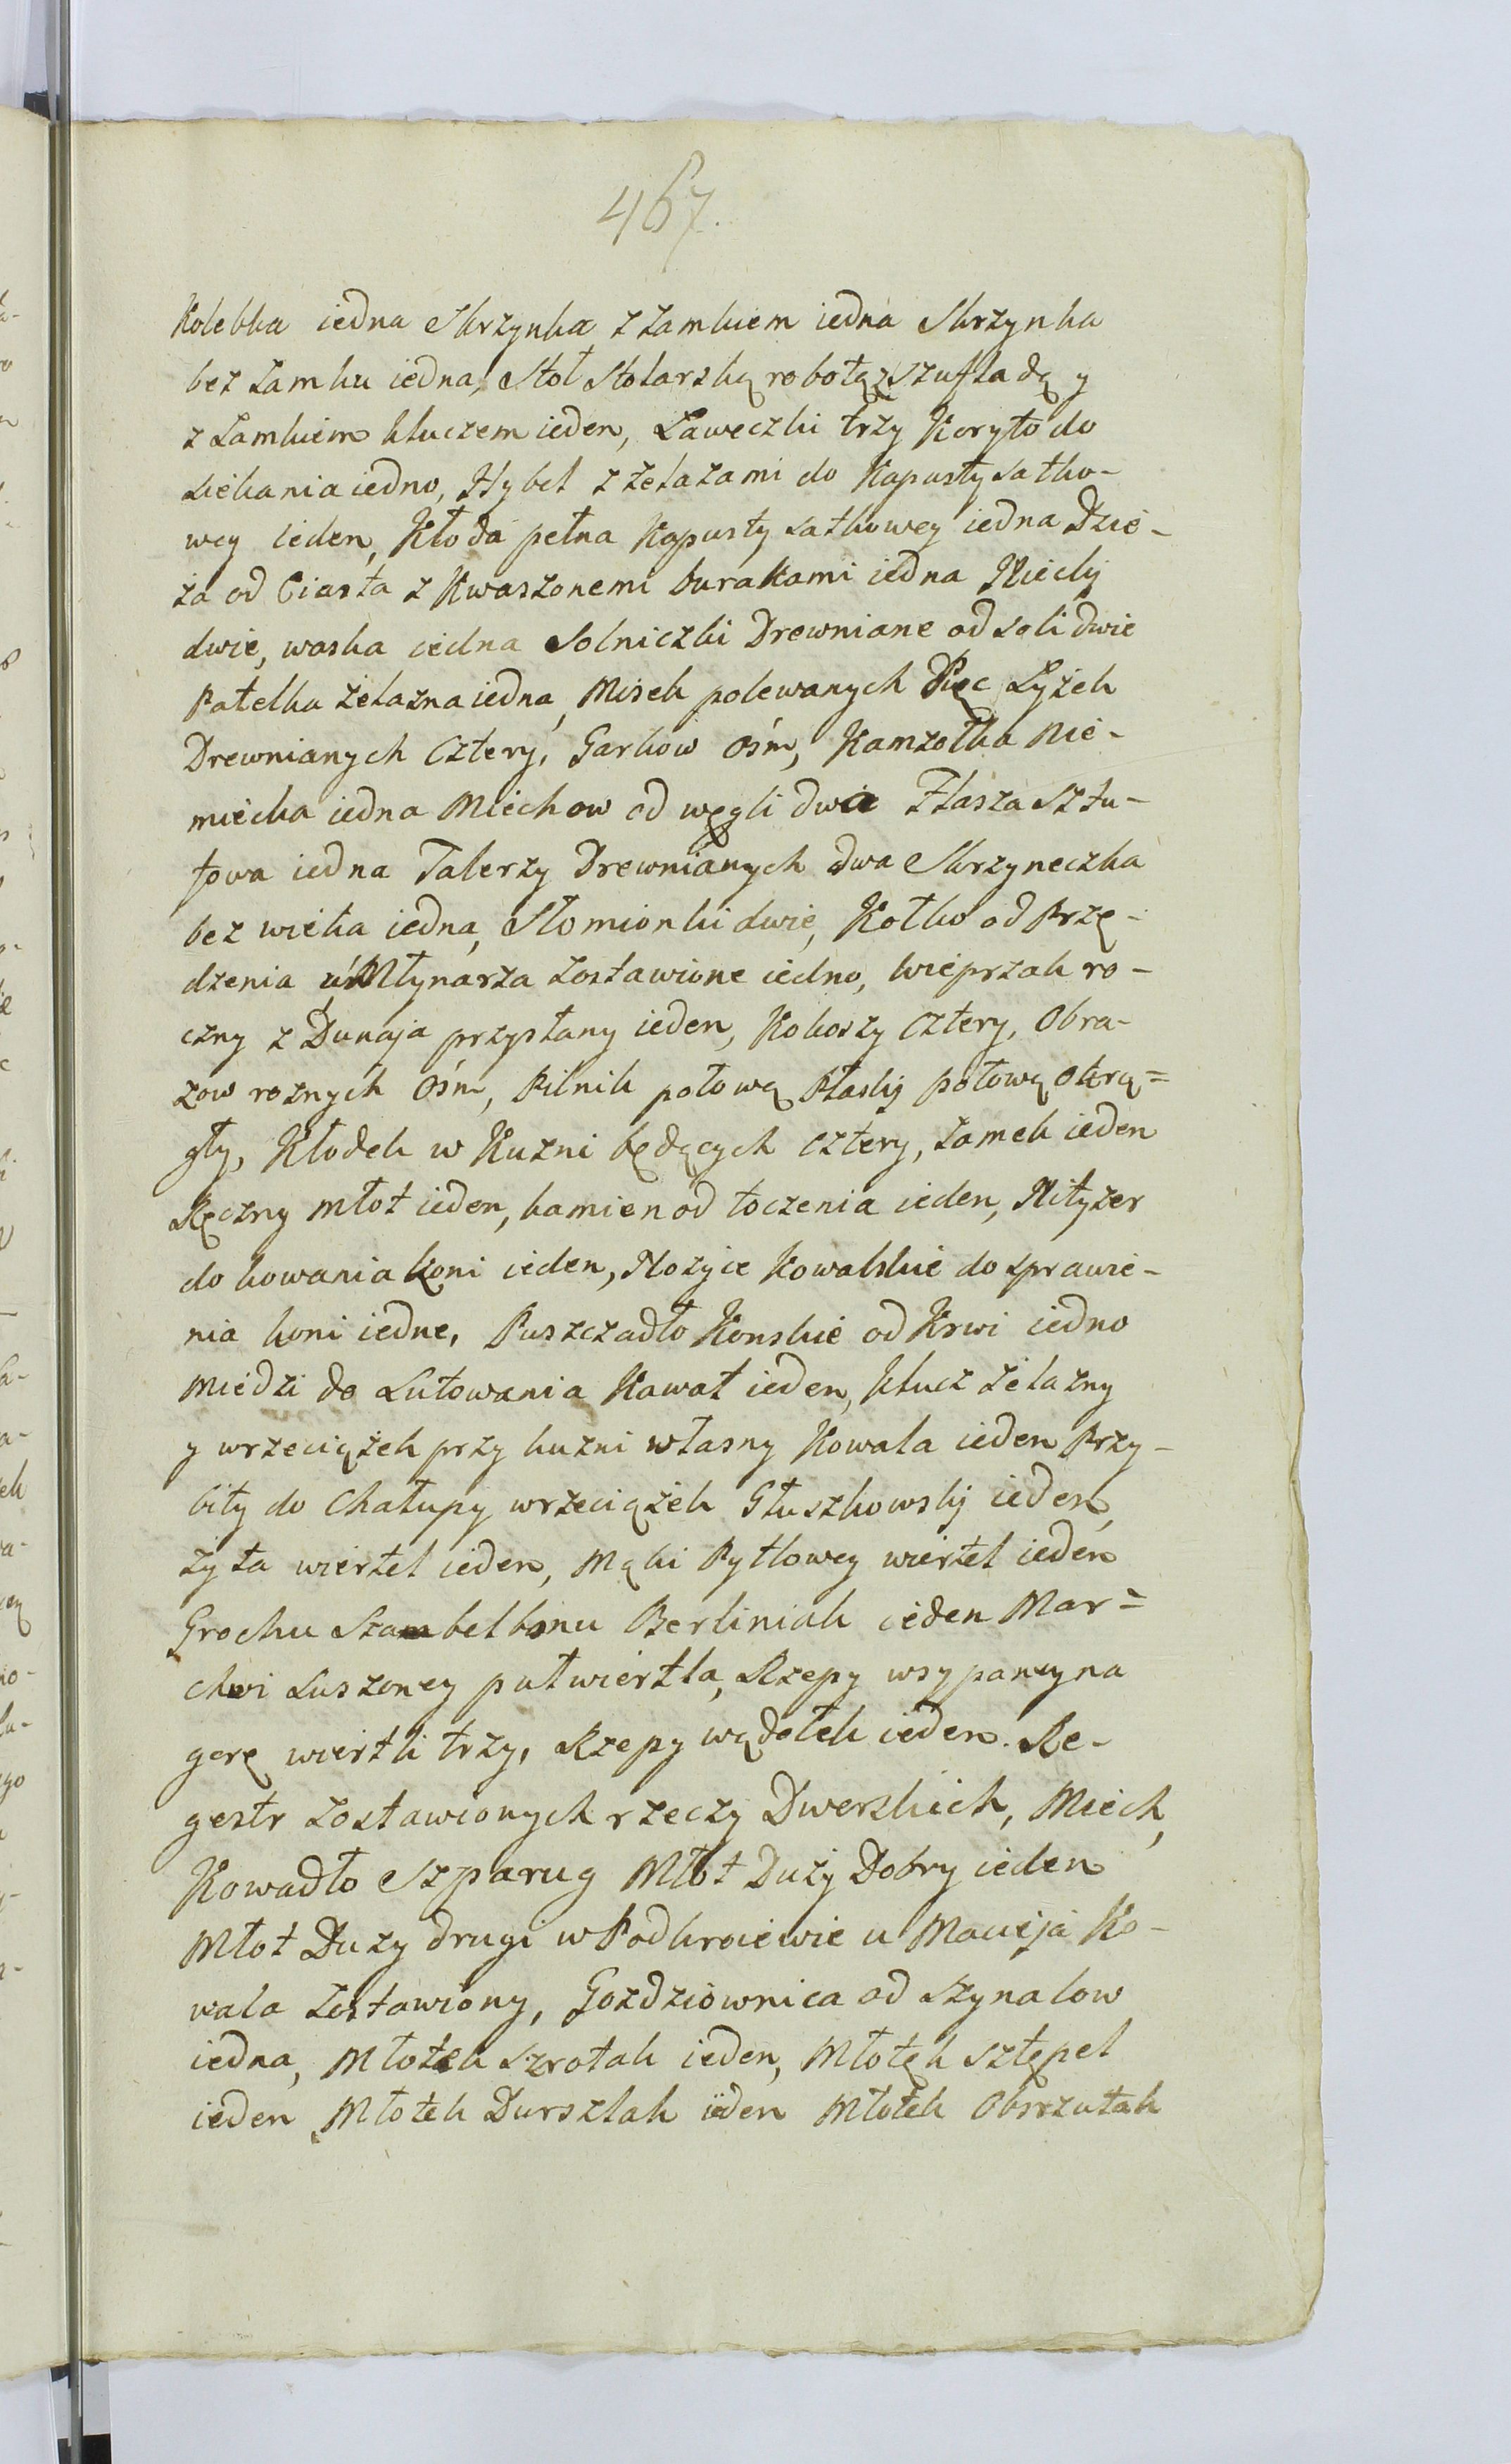 467.
Kolebka iedna Skrzynka z zamkiem iedna Skrzynka
bez zamku iedna, Stoł Stolarską robotą z szufladą y
z Zamkiem kluczem ieden, Ławeczki trzy Koryto do
siekania iedno, Hybel z żelazami do Kapusty satko-
wey ieden, Kłoda pełna Kapusty satkowey iedna Dzie-
ża od Ciasta z Kwaszonemi burakami iedna Niecki
dwie, waska iedna Solniczki Drewniane od soli dwie
Patelka żelazna iedna, Misek polewanych Pięc Łyżek
Drewnianych Cztery, Garkow ośm, Kamzołka Nie-
miecka iedna Miechow od węgli dwa Flasza sztu-
fowa iedna Talerzy Drewnianych dwa Skrzyneczka
bez wieka iedna, Słomionki dwie, Kołko od Przę-
dzenia u Młynarza zostawione iedno, wieprzak ro-
czny z Dunaja przysłany ieden, Kokoszy cztery, Obra-
zow roznych Ośm, Pilnik połową Płaski połową okrą=
gły, Kłodek w Kuzni będących cztery, zamek ieden
Ręczny młot ieden, kamien od toczenia ieden, Nityzer
do kowania koni ieden, Nozyce Kowalskie do sprawie-
nia koni iedne, Puszczadło Konskie od Krwi iedno
Miedzi do Lutowania Kawał ieden, klucz żelazny
y wrzeciążek przy kuzni własny Kowala ieden Przy-
bity do Chałupy wrzeciążek Głuszkowski ieden,
żyta wiertel ieden, Mąki Pytlowey wiertel ieden
Grochu Berliniak ieden Mar=
chwi suszoney puł wiertla, Rzepy wsypaney na
gorę wiertli trzy, Rzepy wądołek ieden. Re-
gestr zostawionych rzeczy Dworskich, Miech,
Kowadło Szparug Młot Duży Dobry ieden
Młot Duzy drugi w Podkroiewie u Macieja Ko-
wala zostawiony, Gozdziownica od szynalow
iedna, Młotek szrotak ieden, Młotek sztępel
ieden Młotek Durszlak ieden Młotek Obrzutak